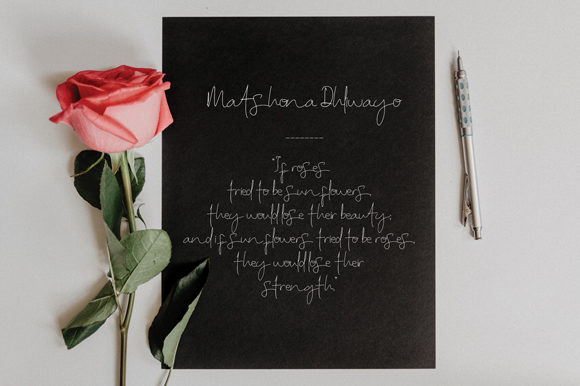 Matshona Dhlwayo
--------
"If roses
tried to be sunflowers,
they would lose ther beauty;
and if sunflowers tried to be roses,
they would lose ther
strength."